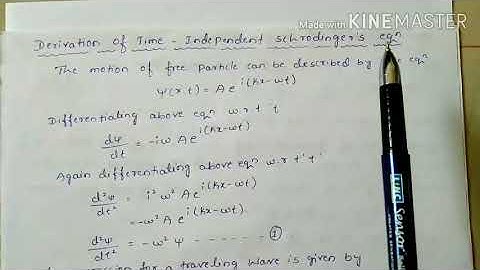 Made with KINEMASTER
Derivation of Time - Independent schrodinger's eqn
The motion of free particle can be described by eqn
ψ(x,t) = A e^i(kx-ωt)
Differentiating above eqn w.r.t 't'
dψ/dt = -iω A e^i(kx-ωt)
Again differentiating above eqn w.r.t 't'
d²ψ/dt² = i² ω² A e^i(kx-ωt)
= -ω² A e^i(kx-ωt)
d²ψ/dt² = -ω² ψ - - - - - - - ①
for a traveling wave is given by
UNC Sensor